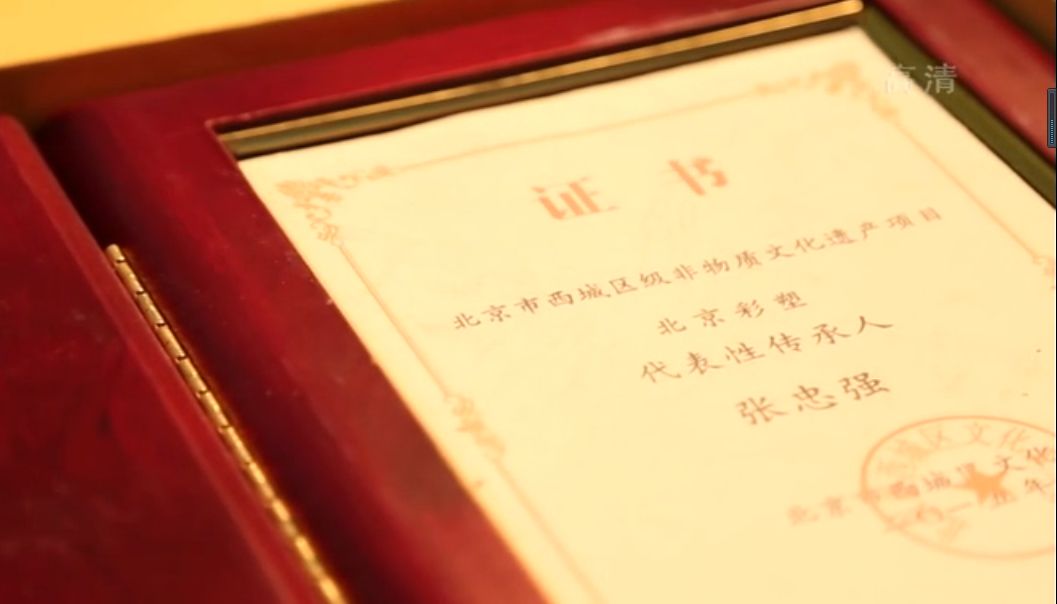 高清
证书
北京市西城区级非物质文化遗产项目
北京彩塑
代表性传承人
张忠强
西城区文化
北京市西城区文化